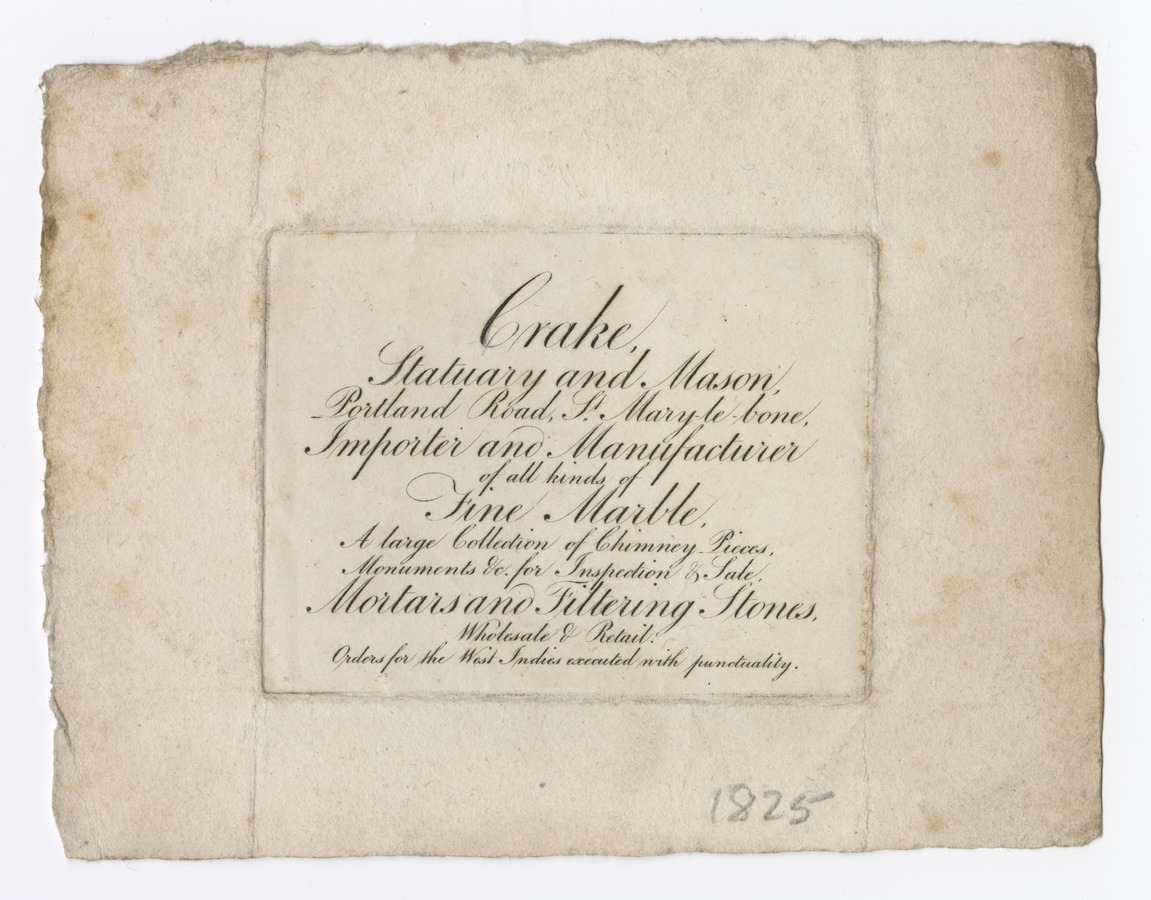 Crake,
Statuary and Mason,
Portland Road, St. Mary-le-bone,
Importer and Manufacturer
of all kinds of
Fine Marble.
A large Collection of Chimney Pieces,
Monuments &c. for Inspection & Sale.
Mortars and Filtering Stones,
Wholesale & Retail.
Orders for the West Indies executed with punctuality.
1825